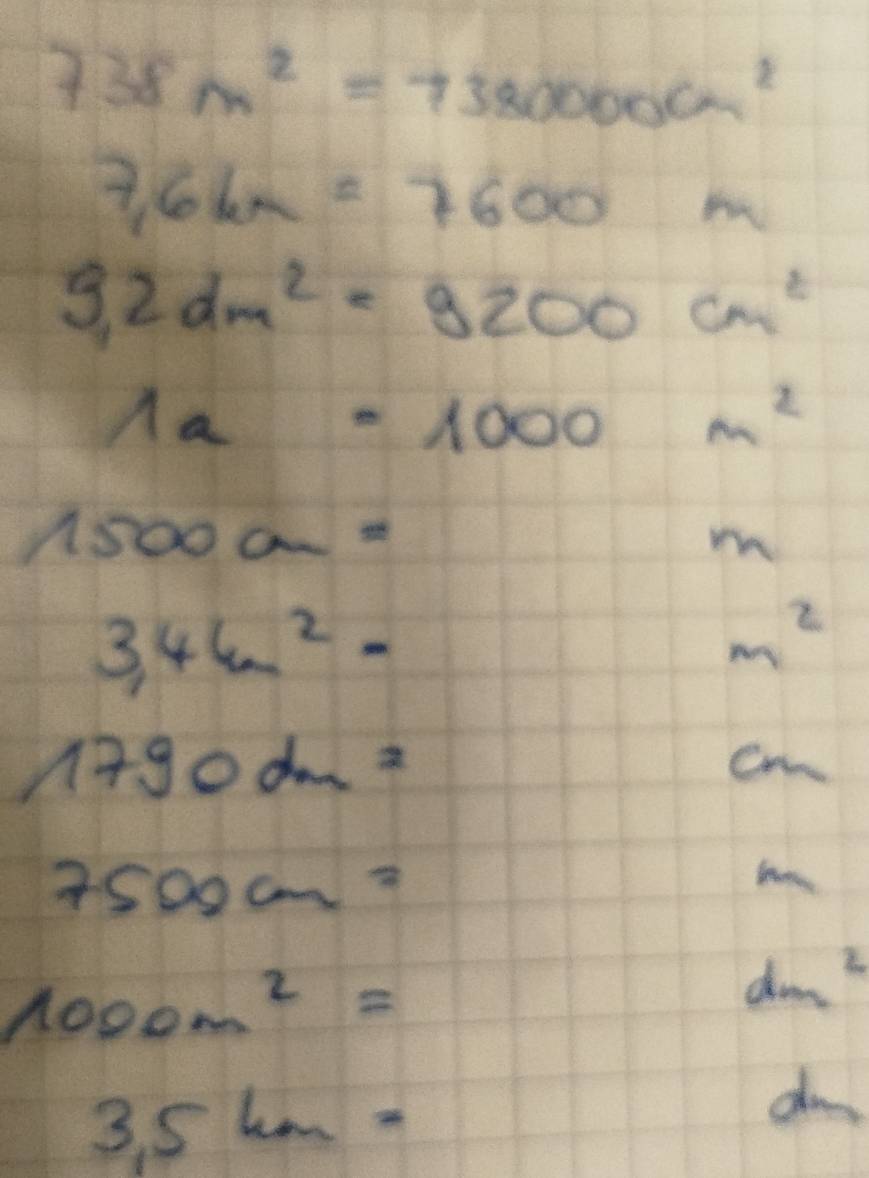 738 m² = 7380000 cm²
7,6 km = 7600 m
9,2 dm² = 9200 cm²
1 a = 1000 m²
1500 cm = m
3,4 km² = m²
1790 dm = cm
7500 cm = m
1000 m² = dm²
3,5 km = dm